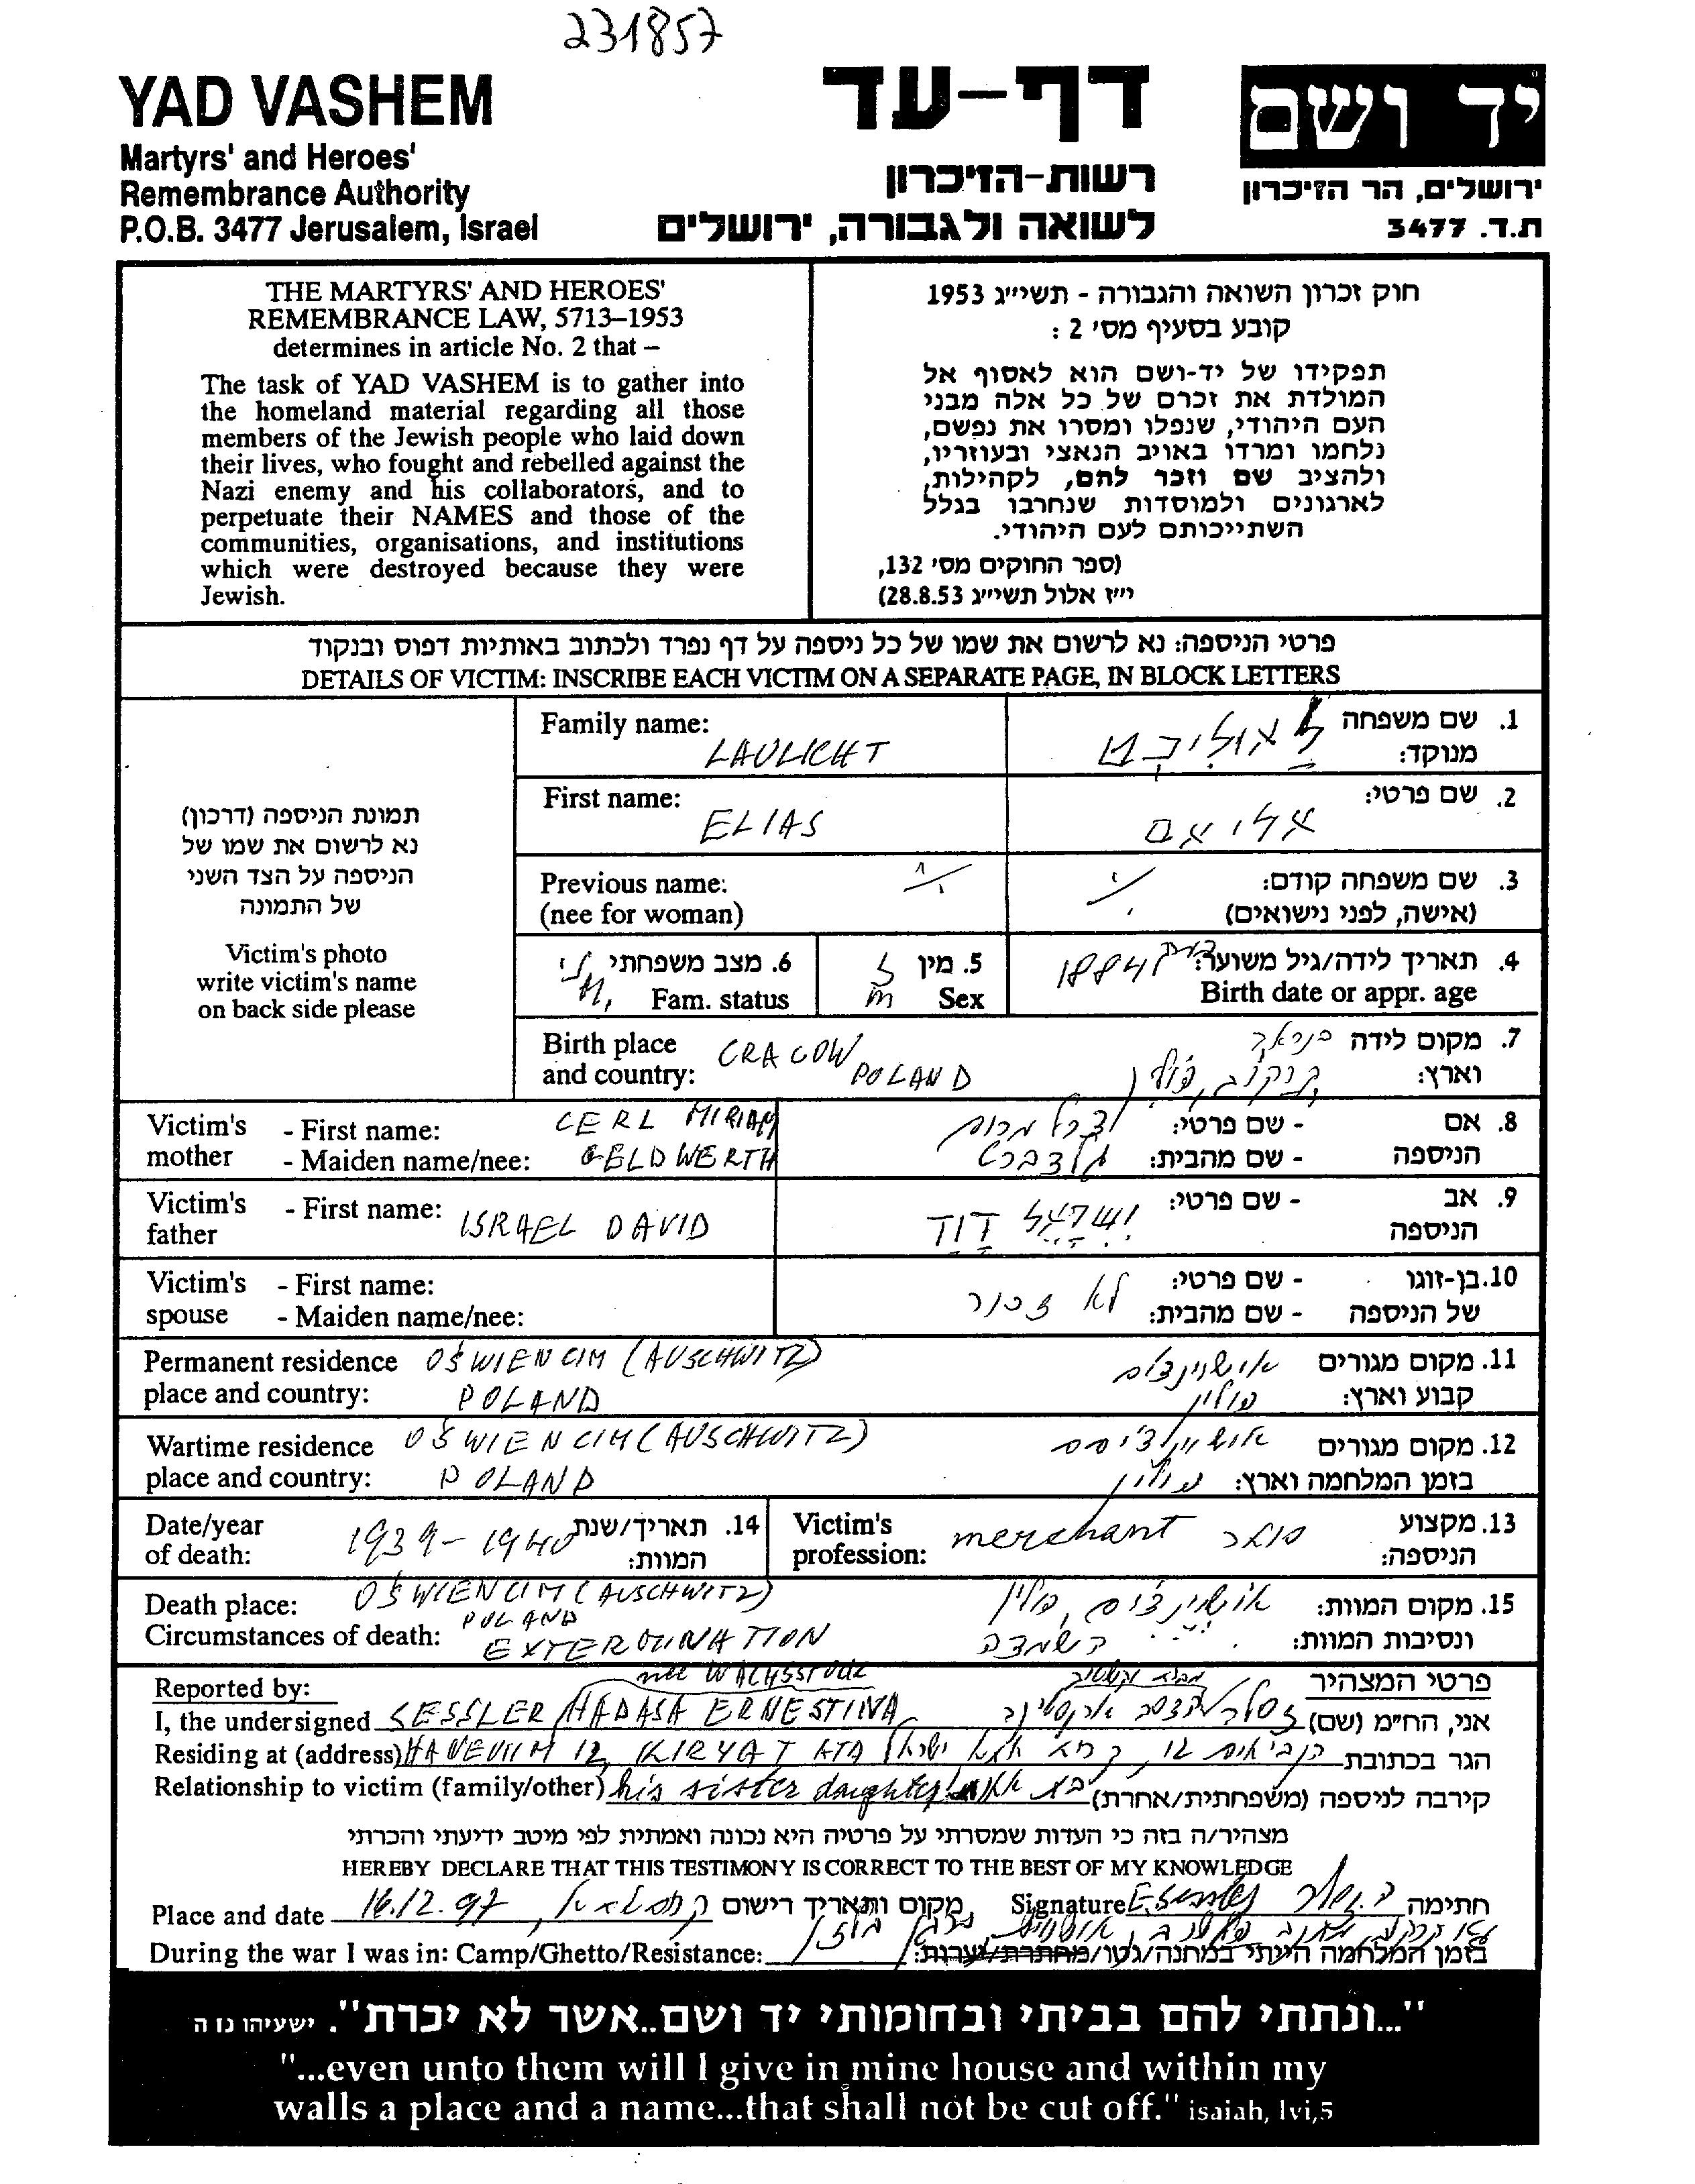 231857
YAD VASHEM
Martyrs' and Heroes'
Remembrance Authority
P.O.B. 3477 Jerusalem, Israel
דף-עד
רשות-הזיכרון
לשואה ולגבורה, ירושלים
יד ושם
ירושלים, הר הזיכרון
ת.ד. 3477
THE MARTYRS' AND HEROES'
REMEMBRANCE LAW, 5713–1953
determines in article No. 2 that –
The task of YAD VASHEM is to gather into
the homeland material regarding all those
members of the Jewish people who laid down
their lives, who fought and rebelled against the
Nazi enemy and his collaborators, and to
perpetuate their NAMES and those of the
communities, organisations, and institutions
which were destroyed because they were
Jewish.
חוק זכרון השואה והגבורה - תשי״ג 1953
קובע בסעיף מס׳ 2 :
תפקידו של יד-ושם הוא לאסוף אל
המולדת את זכרם של כל אלה מבני
העם היהודי, שנפלו ומסרו את נפשם,
נלחמו ומרדו באויב הנאצי ובעוזריו,
ולהציב שם וזכר להם, לקהילות,
לארגונים ולמוסדות שנחרבו בגלל
השתייכותם לעם היהודי.
(ספר החוקים מס׳ 132,
י״ז אלול תשי״ג 28.8.53)
פרטי הניספה: נא לרשום את שמו של כל ניספה על דף נפרד ולכתוב באותיות דפוס ובנקוד
DETAILS OF VICTIM: INSCRIBE EACH VICTIM ON A SEPARATE PAGE, IN BLOCK LETTERS
תמונת הניספה (דרכון)
נא לרשום את שמו של
הניספה על הצד השני
של התמונה
Victim's photo
write victim's name
on back side please
Family name: LAULICHT
1. שם משפחה מנוקד: לאוליכט
First name: ELIAS
2. שם פרטי: אליאס
Previous name:
(nee for woman)
3. שם משפחה קודם:
(אישה, לפני נישואים)
6. מצב משפחתי
Fam. status M,
5. מין ז
Sex m
4. תאריך לידה/גיל משוער: 1884
Birth date or appr. age
Birth place and country: CRACOW POLAND
7. מקום לידה וארץ: קרקוב, פולין
Victim's mother - First name: CERL MIRIAM
- Maiden name/nee: GELDWERTH
8. אם הניספה - שם פרטי: צרל מרים
- שם מהבית: גלדברט
Victim's father - First name: ISRAEL DAVID
9. אב הניספה - שם פרטי: ישראל דוד
Victim's spouse - First name:
- Maiden name/nee:
10. בן-זוגו של הניספה - שם פרטי: לא זכור
- שם מהבית:
Permanent residence OŚWIENCIM (AUSCHWITZ)
place and country: POLAND
11. מקום מגורים אושוינצים
קבוע וארץ: פולין
Wartime residence OŚWIENCIM (AUSCHWITZ)
place and country: POLAND
12. מקום מגורים
בזמן המלחמה וארץ: פולין
Date/year of death: 1939-1940
14. תאריך/שנת המוות:
Victim's profession: merchant
13. מקצוע הניספה: סוחר
Death place: OŚWIENCIM (AUSCHWITZ) POLAND
Circumstances of death: EXTERMINATION
15. מקום המוות: אושוינצים, פולין
ונסיבות המוות: השמדה
Reported by: nee WACHSSTOCK
פרטי המצהיר
I, the undersigned SESSLER HADASA ERNESTINA
אני, הח״מ (שם) זסלר הדסה ארנסטינה
Residing at (address) HANEVIIM 12, KIRYAT ATA
הגר בכתובת הנביאים 12, קרית אתא ישראל
Relationship to victim (family/other) his sister daughter
קירבה לניספה (משפחתית/אחרת) בת אחותו
מצהיר/ה בזה כי העדות שמסרתי על פרטיה היא נכונה ואמתית לפי מיטב ידיעתי והכרתי
HEREBY DECLARE THAT THIS TESTIMONY IS CORRECT TO THE BEST OF MY KNOWLEDGE
Place and date 16.12.97 מקום ותאריך רישום
Signature חתימה
During the war I was in: Camp/Ghetto/Resistance:
בזמן המלחמה הייתי במחנה/גטו/מחתרת/יערות:
"...ונתתי להם בביתי ובחומותי יד ושם..אשר לא יכרת". ישעיהו נו ה
"...even unto them will I give in mine house and within my
walls a place and a name...that shall not be cut off." isaiah, lvi,5